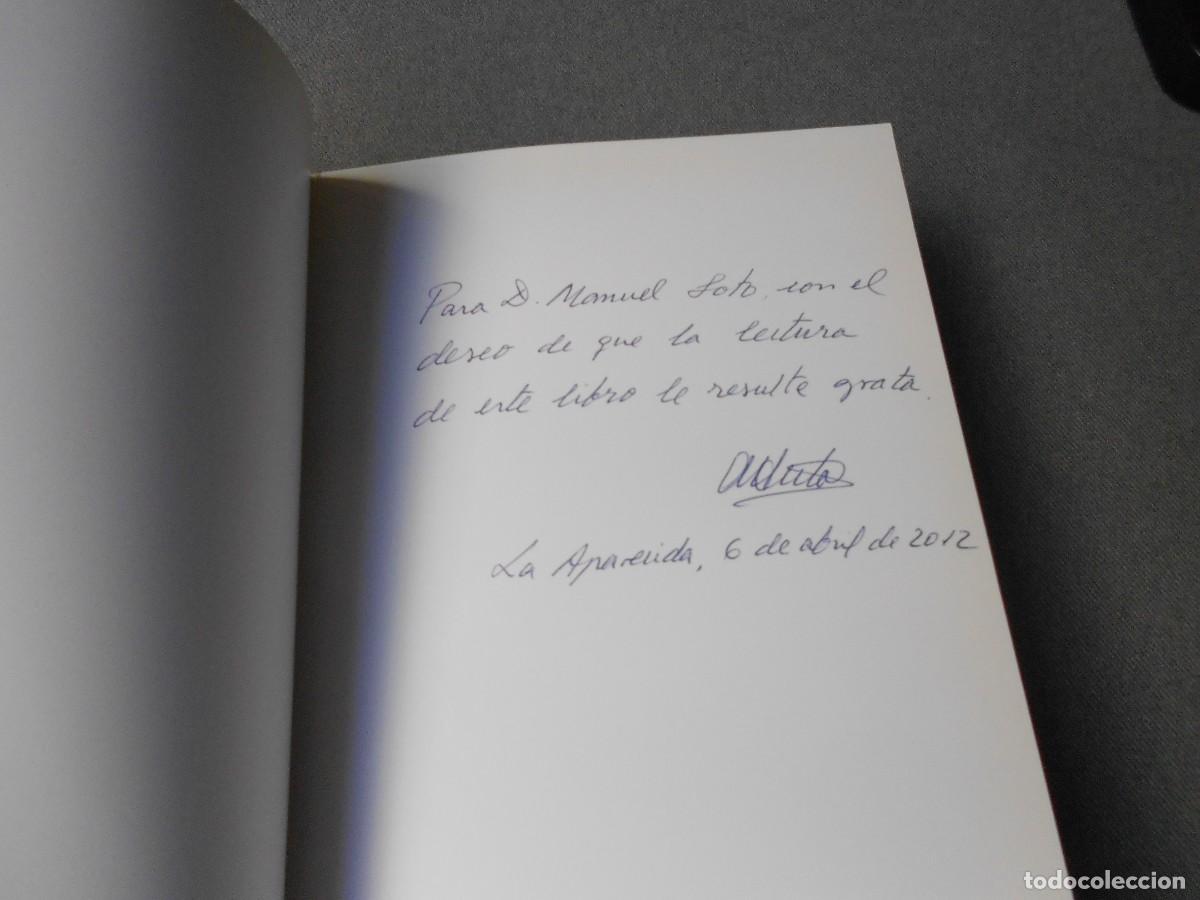 Para D. Manuel Soto, con el
deseo de que la lectura
de este libro le resulte grata.
La Aparecida, 6 de abril de 2012
todocoleccion